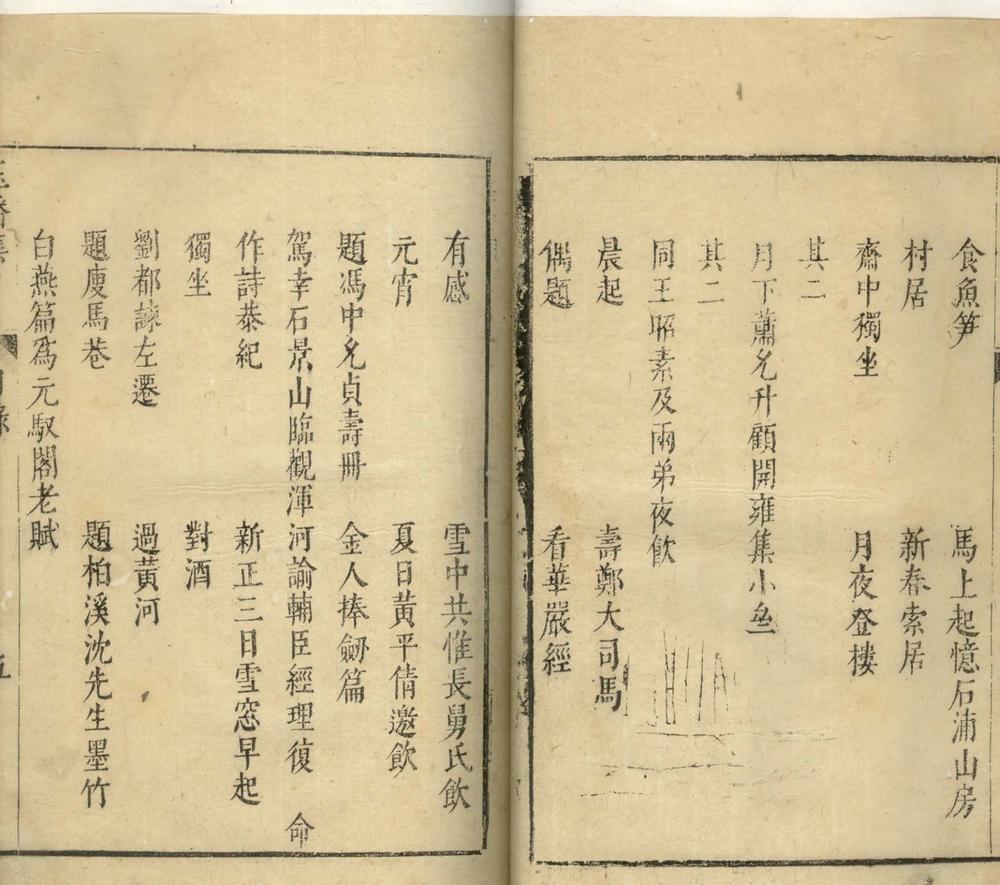 食魚笋　馬上起憶石浦山房
村居　新春索居
齋中獨坐　月夜登樓
其二
月下蕭允升顧開雍集小坐
其二
同王昭素及兩弟夜飲
晨起　壽鄭大司馬
偶題　看華嚴經
有感　雪中共惟長舅氏飲
元宵　夏日黃平倩邀飲
題馮中允貞壽冊　金人捧劒篇
駕幸石景山臨觀渾河諭輔臣經理復　命
作詩恭紀　新正三日雪窓早起
獨坐　對酒
劉都諫左遷　過黃河
題廋馬巷　題柏溪沈先生墨竹
白燕篇為元馭閣老賦